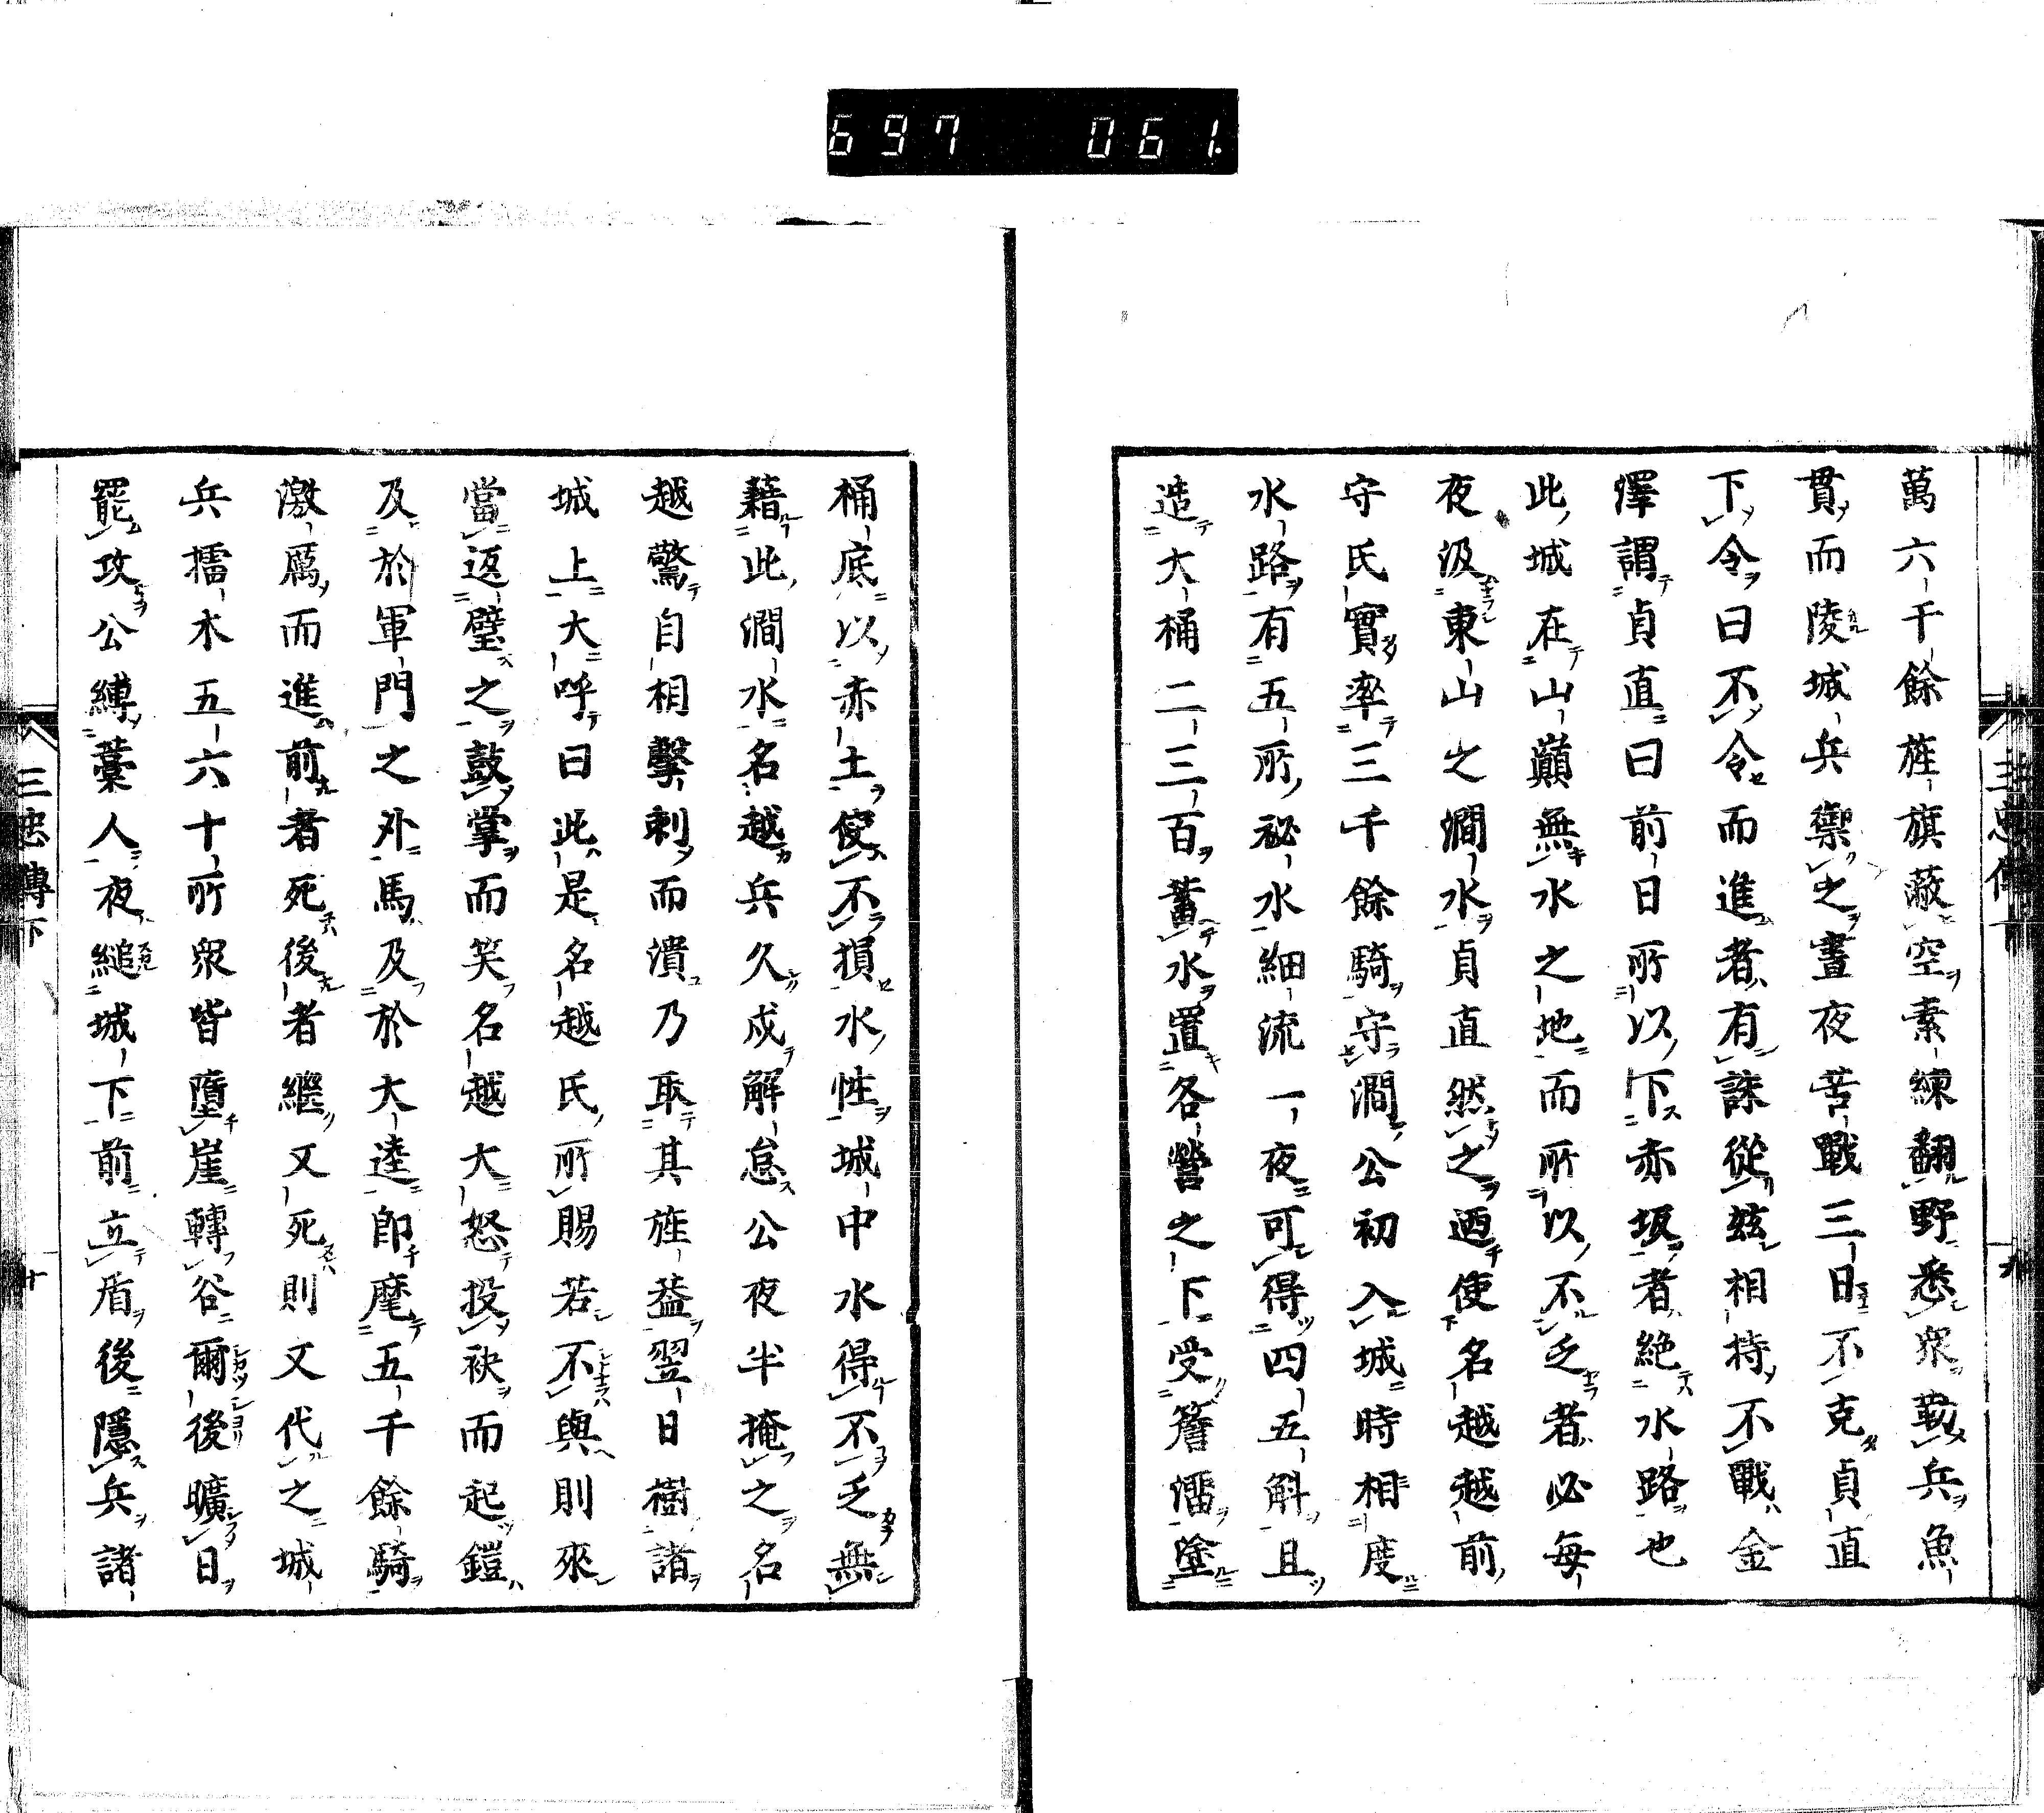 697 061
萬六千餘旌旗蔽空素練翻野悉衆勒兵魚
貫而陵城兵禦之晝夜苦戰三日不克貞直
下令曰不令而進者有誅從玆相持不戰金
澤謂貞直曰前日所以下赤坂者絶水路也
此城在山巔無水之地而所以不乏者必每
夜汲東山之澗水貞直然之迺使名越越前
守氏實率三千餘騎守澗公初入城時相度
水路有五所祕水細流一夜可得四五斛且
造大桶二三百蓄水置各營之下受簷溜塗
三忠傳下
九
桶底以赤土使不損水性城中水得不乏無
藉此澗水名越兵久戍解怠公夜半掩之名
越驚自相擊刺而潰乃取其旌葢翌日樹諸
城上大呼曰此是名越氏所賜若不與則來
當返璧之鼓掌而笑名越大怒投袂而起鎧
及於軍門之外馬及於大逵即麾五千餘騎
激厲而進前者死後者繼又死則又代之城
兵擂木五六十所衆皆墮崖轉谷爾後曠日
罷攻公縛藁人夜縋城下前立盾後隱兵諸
三忠傳下
十